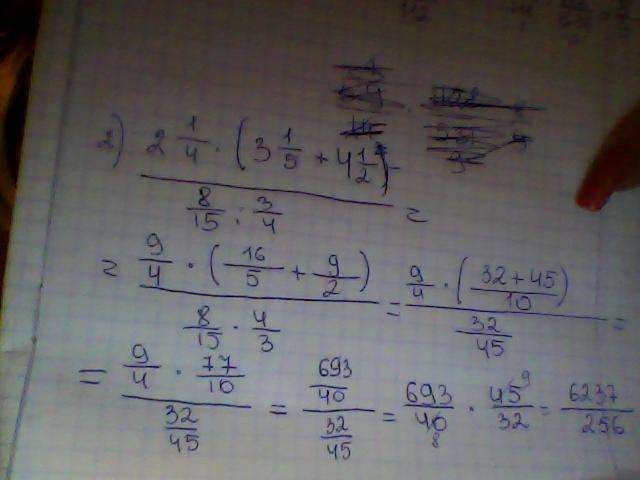 2) 2 1/4 · (3 1/5 + 4 1/2) / (8/15 : 3/4) =
= 9/4 · (16/5 + 9/2) / (8/15 · 4/3) = 9/4 · ((32+45)/10) / (32/45) =
= 9/4 · 77/10 / (32/45) = 693/40 / (32/45) = 693/40 8 · 45 9/32 = 6237/256